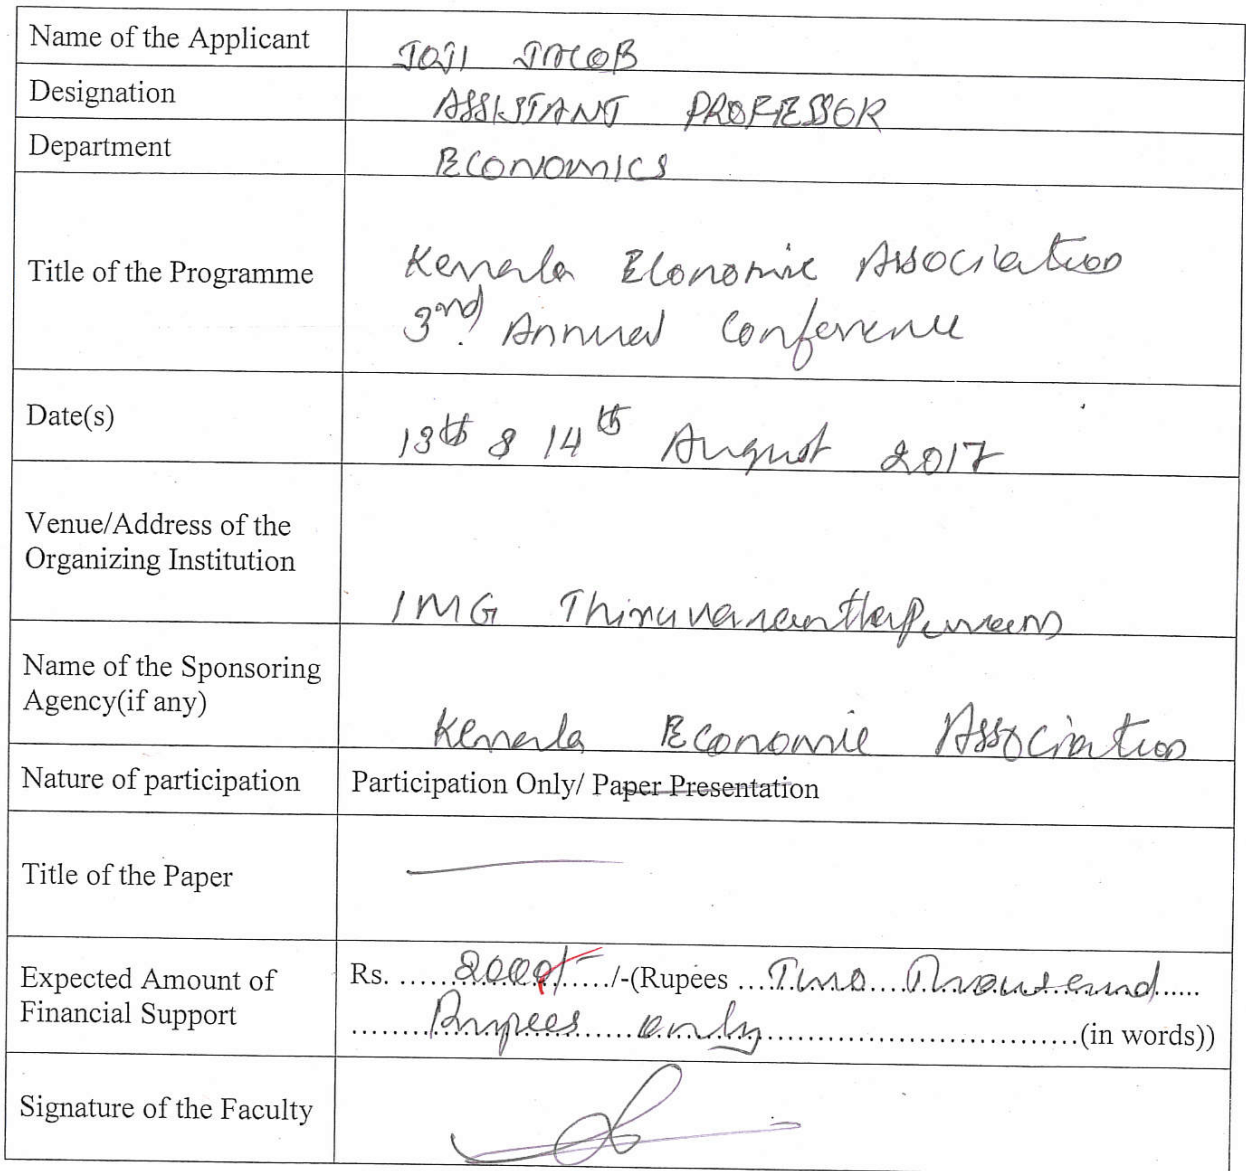 Name of the Applicant JOJI JACOB
Designation ASSISTANT PROFESSOR
Department ECONOMICS
Title of the Programme Kerala Economic Association
3rd Annual Conference
Date(s) 13th & 14th August 2017
Venue/Address of the
Organizing Institution
IMG Thiruvananthapuram
Name of the Sponsoring
Agency(if any)
Kerala Economic Association
Nature of participation Participation Only/ Paper Presentation
Title of the Paper
Expected Amount of
Financial Support
Rs. ......2000/-....../-(Rupees ....Two....Thousand.....
........Rupees......only........................................(in words))
Signature of the Faculty